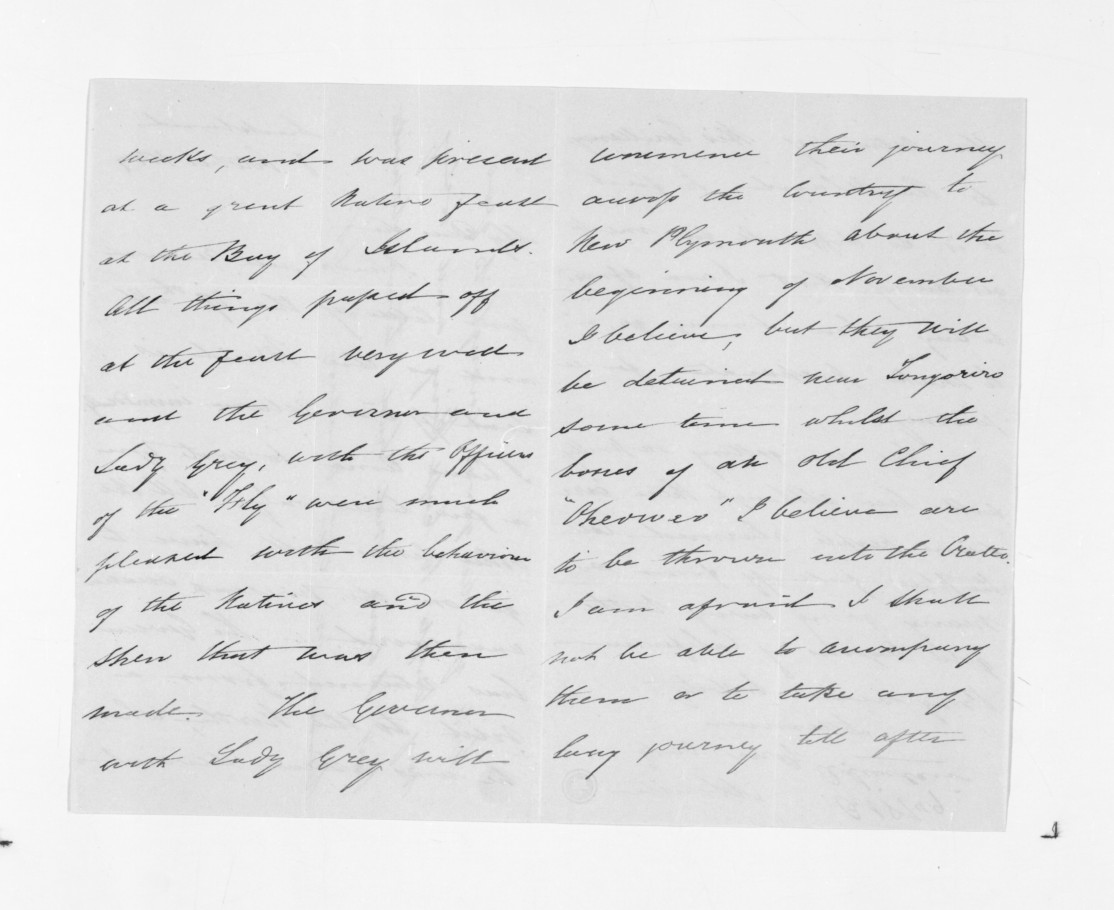 weeks, and was present
at a great Native feast
at the Bay of Islands.
All things passed off
at the feast very well
and the Governor and
Lady Grey, with the Officers
of the "Fly" were much
pleased with the behaviour
of the Natives and the
shew that was then
made. The Governor
with Lady Grey will
commence their journey
across the Country to
New Plymouth about the
beginning of November
I believe, but they will
be detained near Tongoriro
some time whilst the
bones of an old Chief
I believe are
to be thrown into the Crater.
I am afraid I shall
not be able to accompany
them or to take any
long journey till after